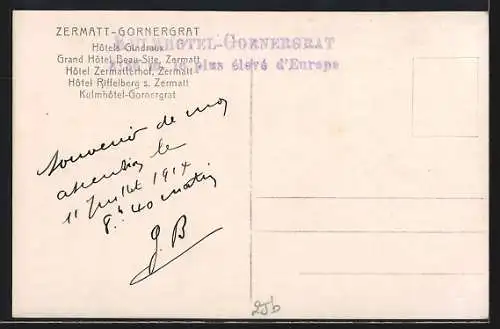 ZERMATT-GORNERGRAT
Hôtels Gindraux
Grand Hôtel Beau-Site, Zermatt
Hôtel Zermatterhof, Zermatt
Hôtel Riffelberg s. Zermatt
Kulmhôtel-Gornergrat
KULMHOTEL-GORNERGRAT
le plus élevé d'Europe
Souvenir de mon
ascension le
11 Juillet 1914
8h 40 matin
G. B